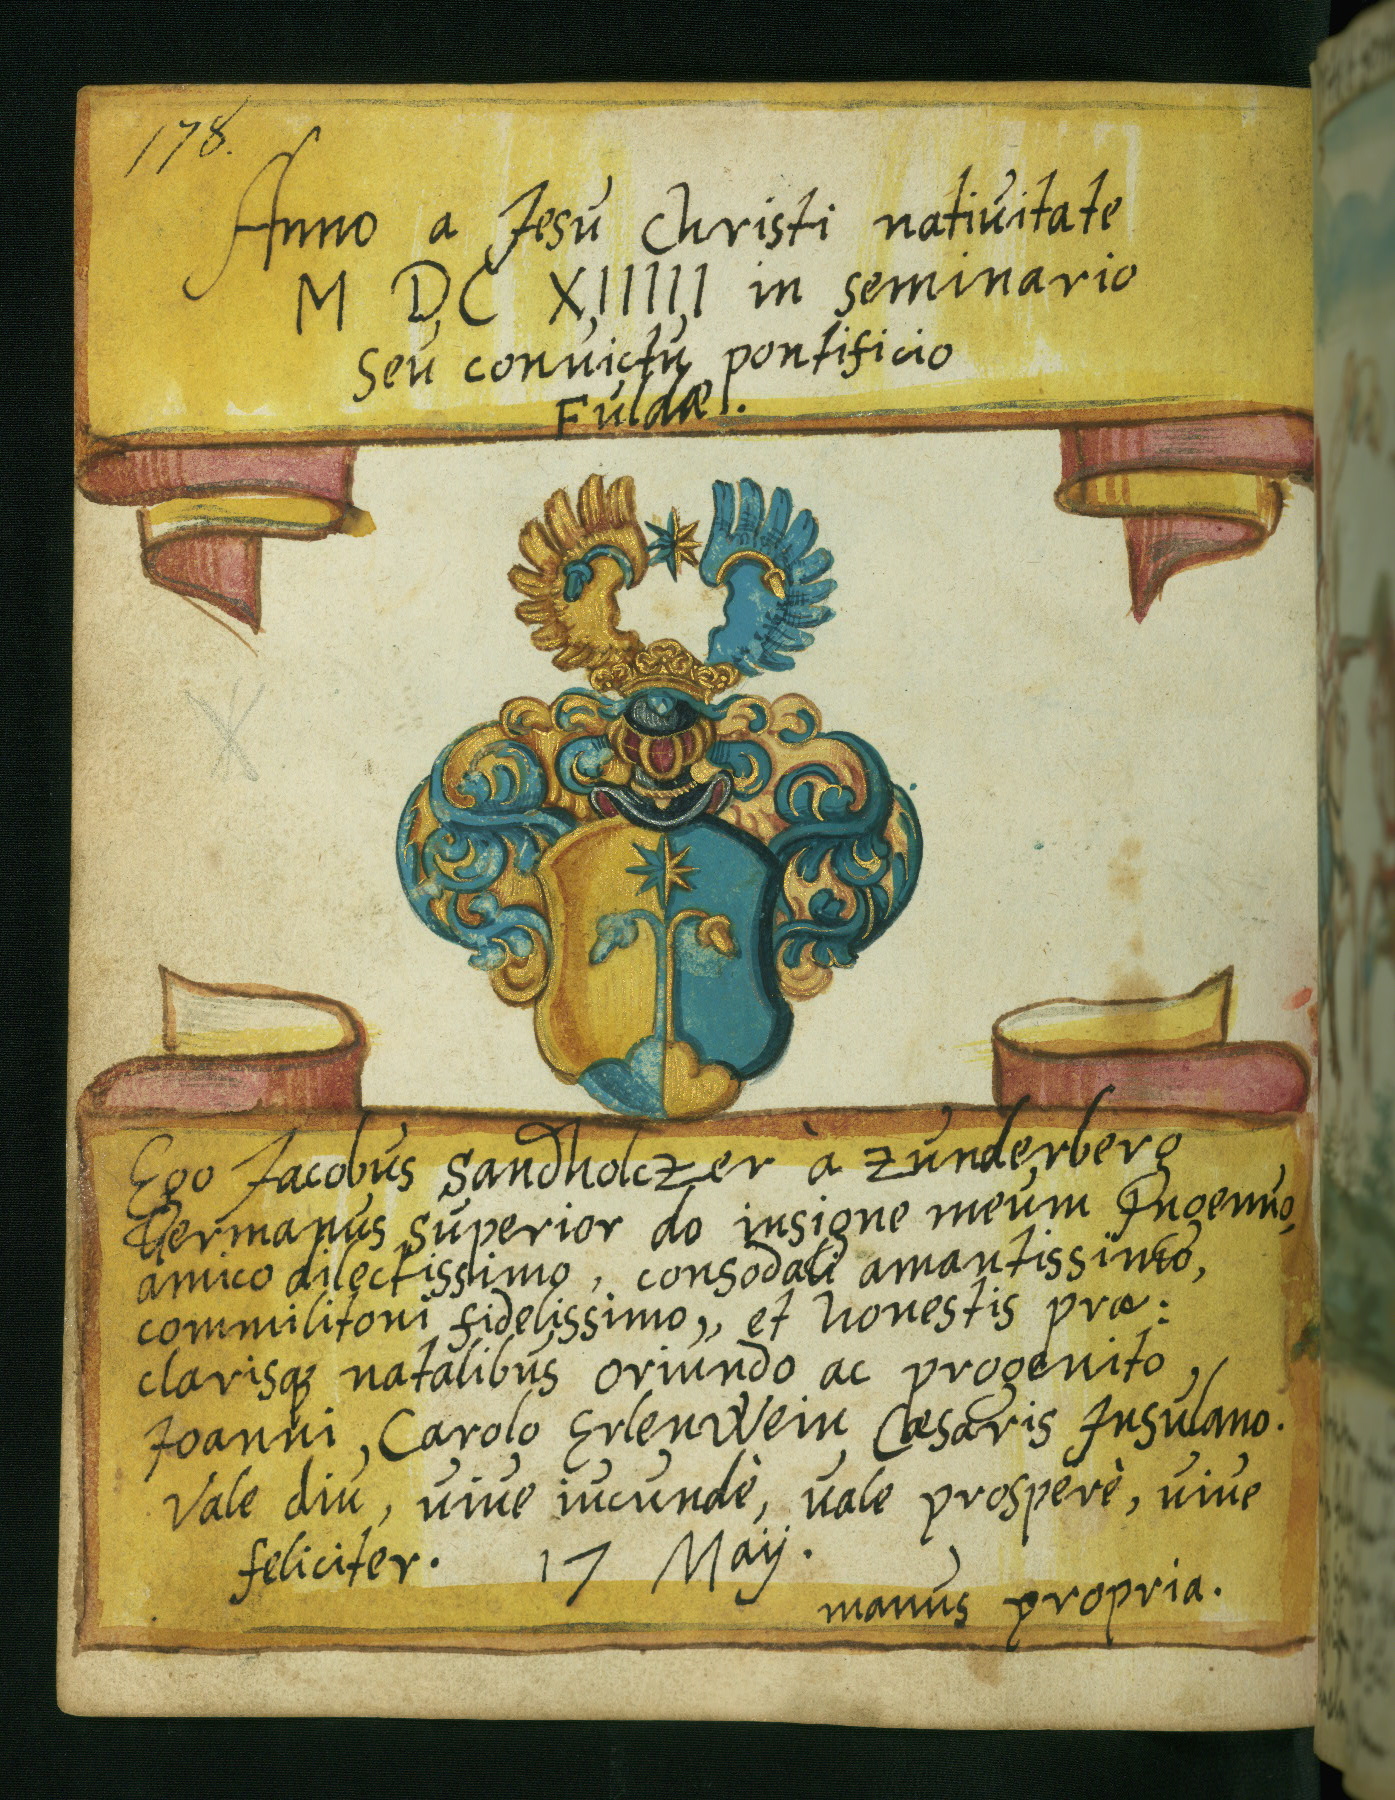 178.
Anno a Jesu Christi natiuitate
M DC XIIIIII in seminario
seu conuictu pontificio
Fuldæ.
Ego Jacobus Sandholczer à Zunderberg
Germanus superior do insigne meum Ingenuo,
amico dilectissimo, consodali amantissimo,
commilitoni fidelissimo,, et honestis præ:
clarisq; natalibus oriundo ac progenito,
Joanni, Carolo ErlenWein Cæsaris Insulano.
Vale diu, uiue iucundè, uale prosperè, uiue
feliciter. 17 Maij.
manus propria.